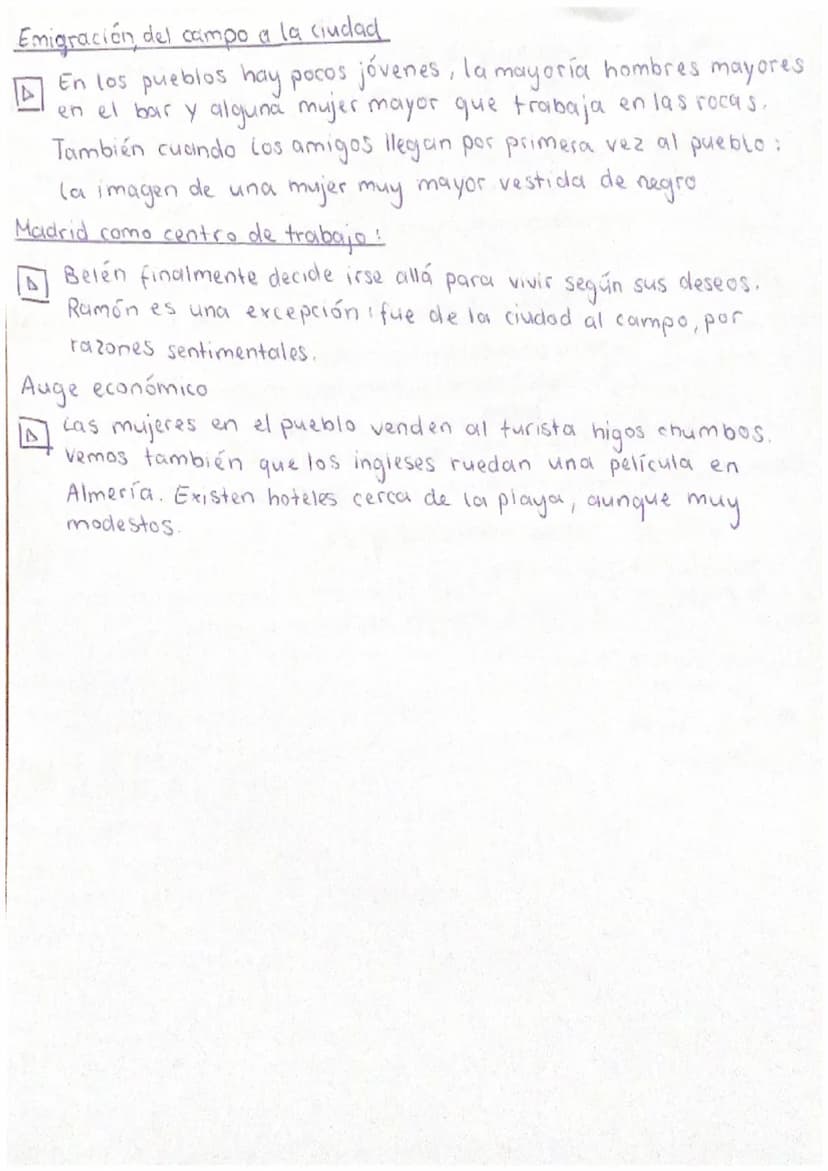 Emigración, del campo a la ciudad
En los pueblos hay pocos jóvenes, la mayoría hombres mayores
en el bar y alguna mujer mayor que trabaja en las rocas.
También cuando los amigos llegan por primera vez al pueblo:
la imagen de una mujer muy mayor vestida de negro
Madrid como centro de trabajo:
Belén finalmente decide irse allá para vivir según sus deseos.
Ramón es una excepción: fue de la ciudad al campo, por
razones sentimentales.
Auge económico
Las mujeres en el pueblo venden al turista higos chumbos.
Vemos también que los ingleses ruedan una película en
Almería. Existen hoteles cerca de la playa, aunque muy
modestos.